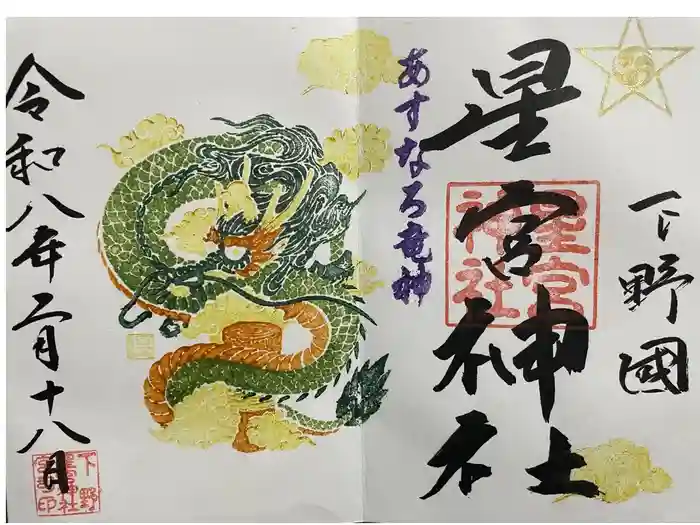 下野國
星宮神社
星宮
神社
あすなろ竜神
令和八年二月十八日
下野
星宮神社